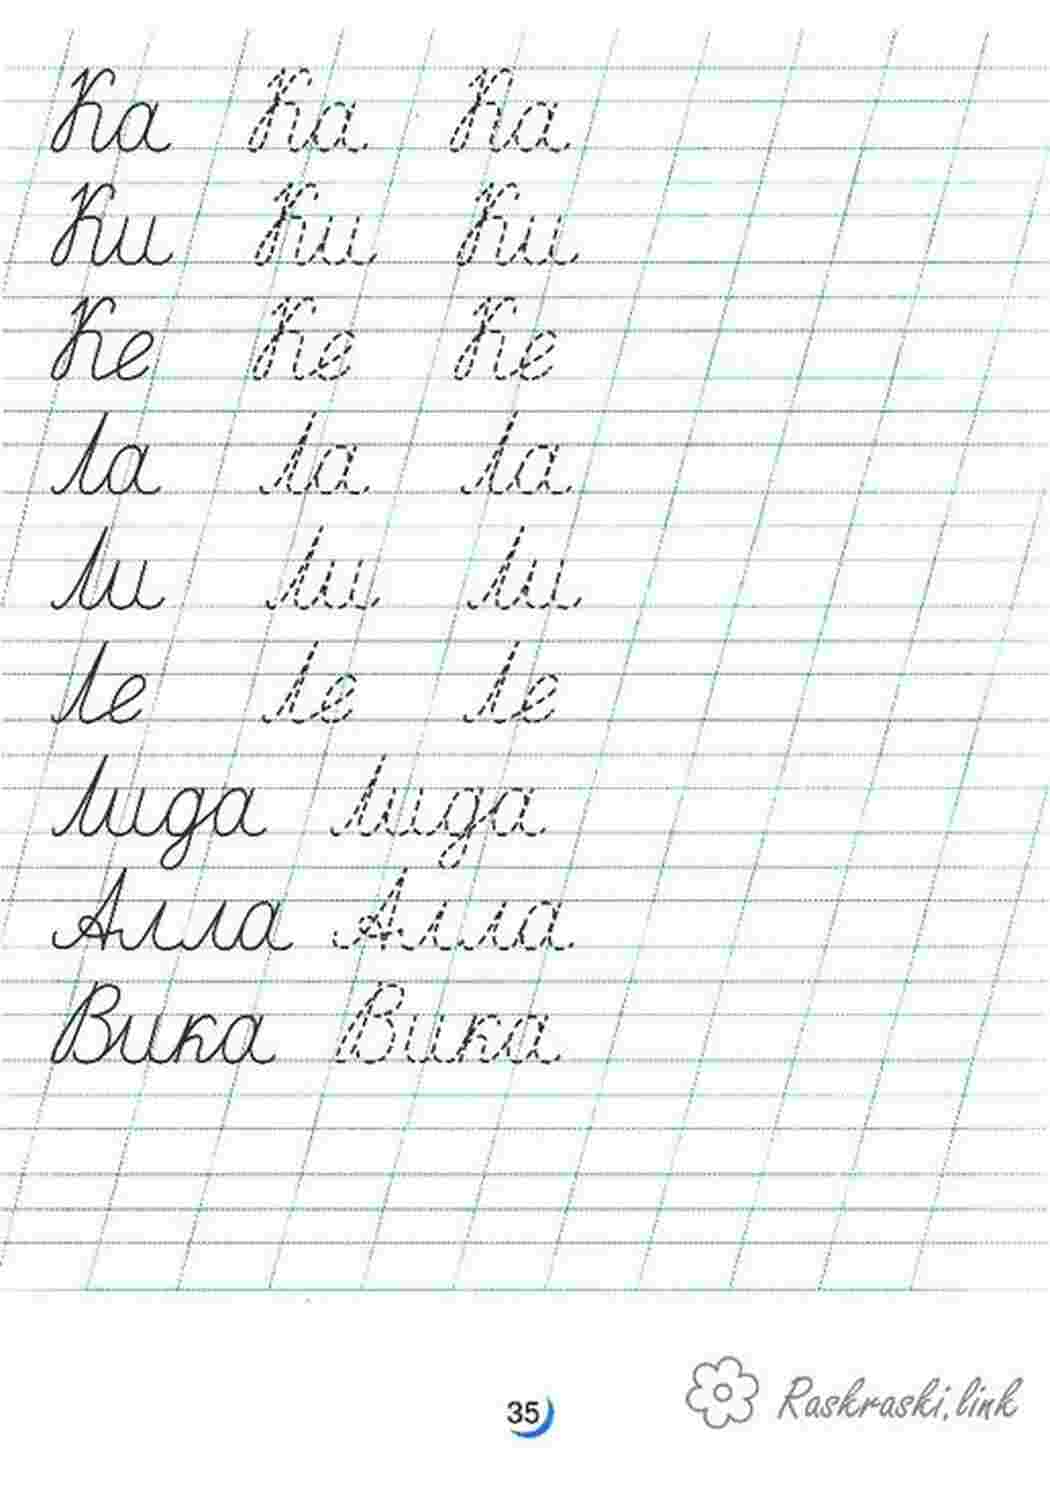 Ка Ка Ка
Ки Ки Ки
Ке Ке Ке
Ла Ла Ла
Ли Ли Ли
Ле Ле Ле
Лида Лида
Алла Алла
Вика Вика
35
Raskraski.link